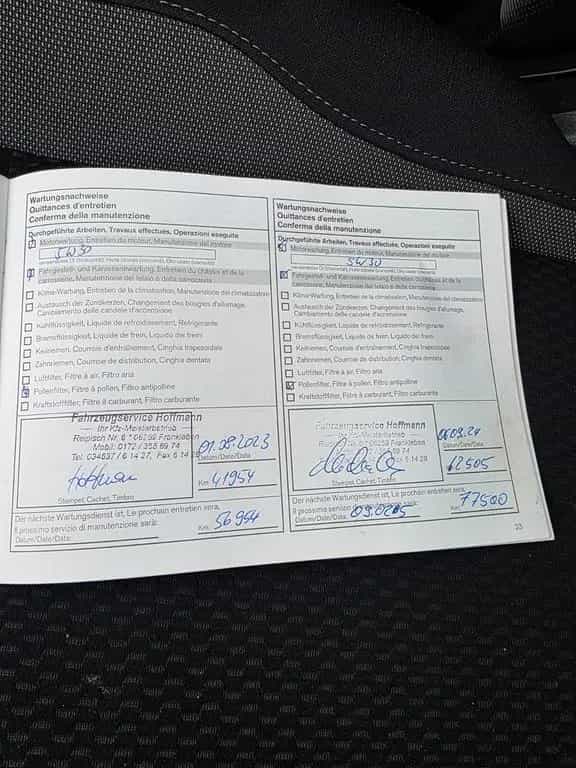 Wartungsnachweise
Quittances d'entretien
Conferma della manutenzione
Durchgeführte Arbeiten, Travaux effectués, Operazioni eseguite
Motorwartung, Entretien du moteur, Manutenzione del motore
5W30
Fahrgestell- und Karosseriewartung, Entretien du châssis et de la
carrosserie, Manutenzione del telaio o della carrozzeria
Klima-Wartung, Entretien de la climatisation, Manutenzione del climatizzatore
Austausch der Zündkerzen, Changement des bougies d'allumage,
Cambiamento delle candele d'accensione
Kühlflüssigkeit, Liquide de refroidissement, Refrigerante
Bremsflüssigkeit, Liquide de frein, Liquido dei freni
Keilriemen, Courroie d'entraînement, Cinghia trapezoidale
Zahnriemen, Courroie de distribution, Cinghia dentata
Luftfilter, Filtre à air, Filtro aria
Pollenfilter, Filtre à pollen, Filtro antipolline
Kraftstofffilter, Filtre à carburant, Filtro carburante
Fahrzeugservice Hoffmann
Ihr Kfz-Meisterbetrieb
06259 Frankleben
Mobil: 0172 / 355 69 74
Tel. 034637 / 6 14 27, Fax 6 14 28
01.08.2023
Datum/Date/Data:
Km 41954
Stempel, Cachet, Timbro
Der nächste Wartungsdienst ist, Le prochain entretien sera,
Il prossimo servizio di manutenzione sarà:
Datum/Date/Data:
Km 56954
Wartungsnachweise
Quittances d'entretien
Conferma della manutenzione
Durchgeführte Arbeiten, Travaux effectués, Operazioni eseguite
Motorwartung, Entretien du moteur, Manutenzione del motore
5W30
Fahrgestell- und Karosseriewartung, Entretien du châssis et de la
carrosserie, Manutenzione del telaio o della carrozzeria
Klima-Wartung, Entretien de la climatisation, Manutenzione del climatizzatore
Austausch der Zündkerzen, Changement des bougies d'allumage,
Cambiamento delle candele d'accensione
Kühlflüssigkeit, Liquide de refroidissement, Refrigerante
Bremsflüssigkeit, Liquide de frein, Liquido dei freni
Keilriemen, Courroie d'entraînement, Cinghia trapezoidale
Zahnriemen, Courroie de distribution, Cinghia dentata
Luftfilter, Filtre à air, Filtro aria
Pollenfilter, Filtre à pollen, Filtro antipolline
Kraftstofffilter, Filtre à carburant, Filtro carburante
Fahrzeugservice Hoffmann
Ihr Kfz-Meisterbetrieb
06259 Frankleben
355 69 74
Fax 6 14 28
Datum/Date/Data:
62505
Stempel, Cachet, Timbro
Der nächste Wartungsdienst ist, Le prochain entretien sera,
Il prossimo servizio
Datum/Date/Data:
Km 77500
33